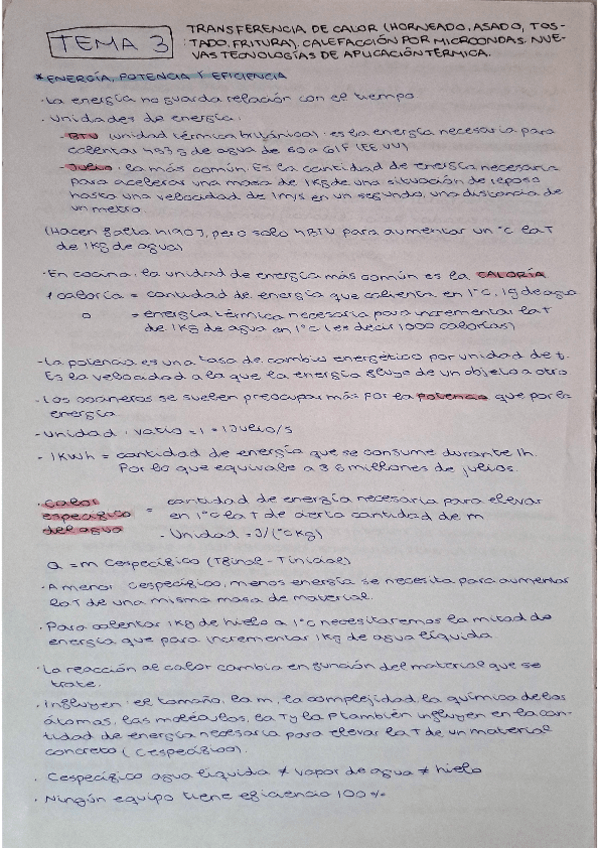 TEMA 3
TRANSFERENCIA DE CALOR (HORNEADO, ASADO, TOS-
TADO, FRITURA), CALEFACCIÓN POR MICROONDAS. NUE-
VAS TECNOLOGÍAS DE APLICACIÓN TÉRMICA.
* ENERGÍA, POTENCIA Y EFICIENCIA
· La energía no guarda relación con el tiempo
· Unidades de energía:
- BTU (unidad térmica británica): es la energía necesaria para
calentar 453 g de agua de 60 a 61F (EE UU)
- Julio: la más común. Es la cantidad de energía necesaria
para acelerar una masa de 1Kg de una situación de reposo
hasta una velocidad de 1m/s en un segundo, una distancia de
un metro
(Hacen falta 4190 J, pero solo 4BTU para aumentar un °C la T
de 1Kg de agua)
· En cocina, la unidad de energía más común es la CALORÍA
1 caloría = cantidad de energía que calienta en 1°C, 1g de agua
o = energía térmica necesaria para incrementar la T
de 1Kg de agua en 1°C (es decir 1000 calorías)
- La potencia es una tasa de cambio energético por unidad de t.
Es la velocidad a la que la energía fluye de un objeto a otro
· Los cocineros se suelen preocupar más por la potencia que por la
energía
- Unidad: vatio = 1 = 1Julio/s
- 1KWh = cantidad de energía que se consume durante 1h.
Por lo que equivale a 3 6 millones de julios.
· Calor específico del agua = cantidad de energía necesaria para elevar
en 1°C la T de cierta cantidad de m
- Unidad = J/(°C Kg)
Q = m Cespecífico (Tfinal - Tinicial)
· A menor Cespecífico, menos energía se necesita para aumentar
la T de una misma masa de material.
· Para calentar 1Kg de hielo a 1°C necesitaremos la mitad de
energía que para incrementar 1Kg de agua líquida
· La reacción al calor cambia en función del material que se
trate.
· Influyen: el tamaño, la m, la complejidad, la química de los
átomos, las moléculas, la T y la P también influyen en la can-
tidad de energía necesaria para elevar la T de un material
concreto (Cespecífico).
· Cespecífico agua líquida ≠ vapor de agua ≠ hielo
· Ningún equipo tiene eficiencia 100%